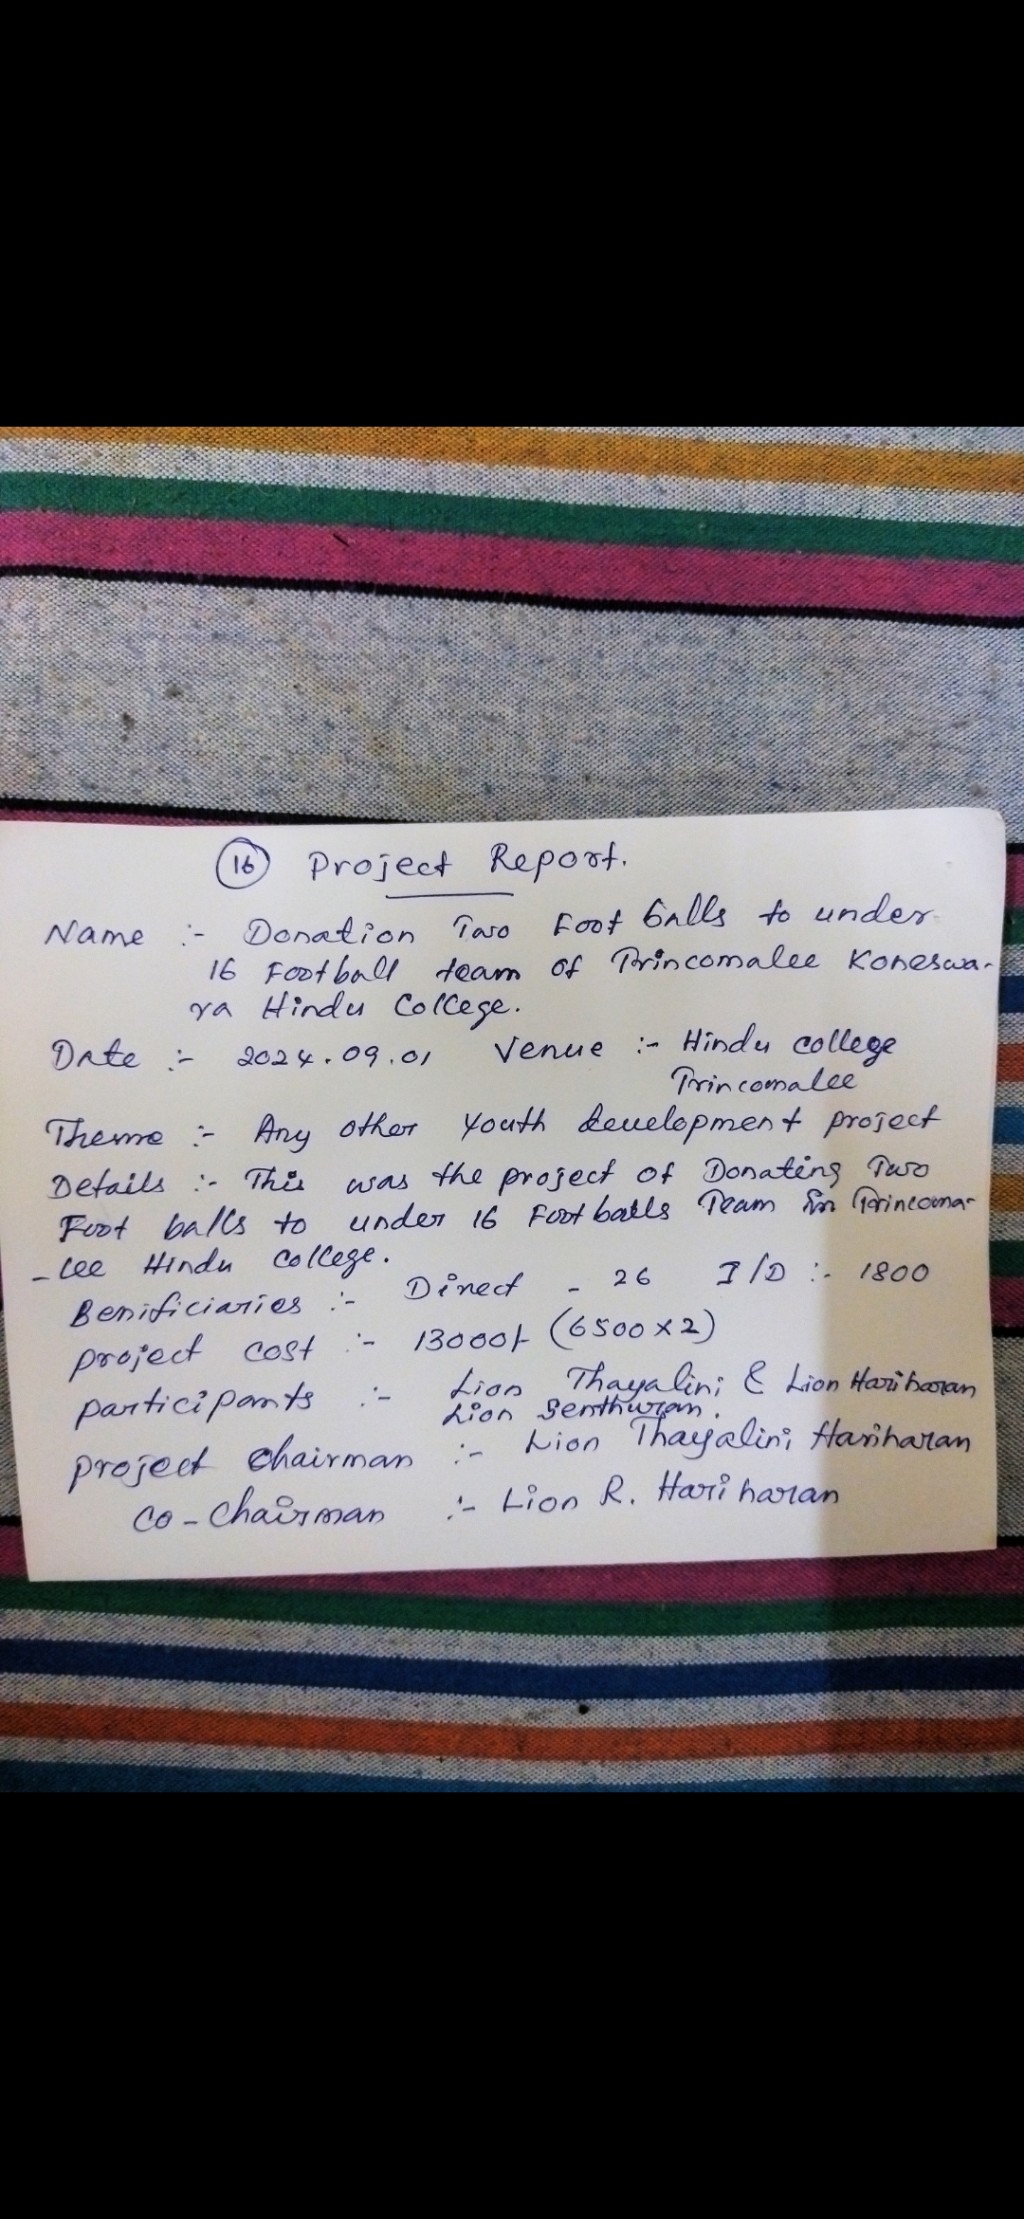 16 Project Report.
Name :- Donation Two Foot balls to under
16 Football team of Trincomalee Koneswa-
ra Hindu College.
Date :- 2024.09.01 Venue :- Hindu college
Trincomalee
Theme :- Any other Youth development project
Details :- This was the project of Donating Two
Foot balls to under 16 Footballs Team in Trincoma-
-lee Hindu College.
Benificiaries :- Direct - 26 I/D :- 1800
project cost :- 13000/- (6500 x 2)
participants :- Lion Thayalini & Lion Hariharan
Lion Senthuran.
project chairman :- Lion Thayalini Hariharan
co-chairman :- Lion R. Hariharan